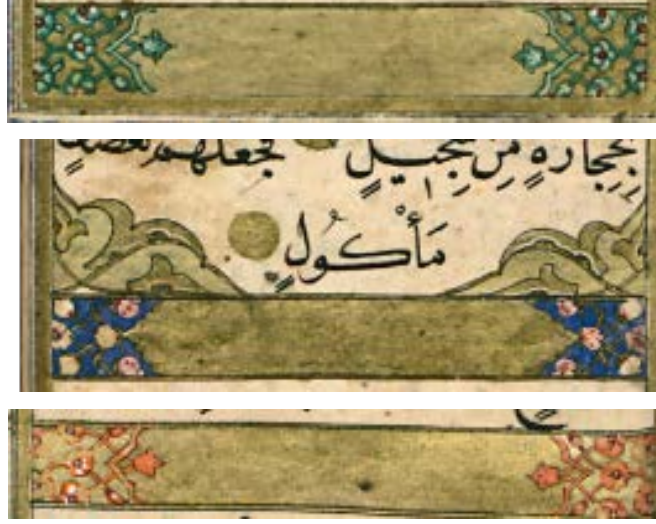 بِحِجَارَةٍ مِّن سِجِّيلٍ فَجَعَلَهُمْ كَعَصْفٍ
مَّأْكُولٍ